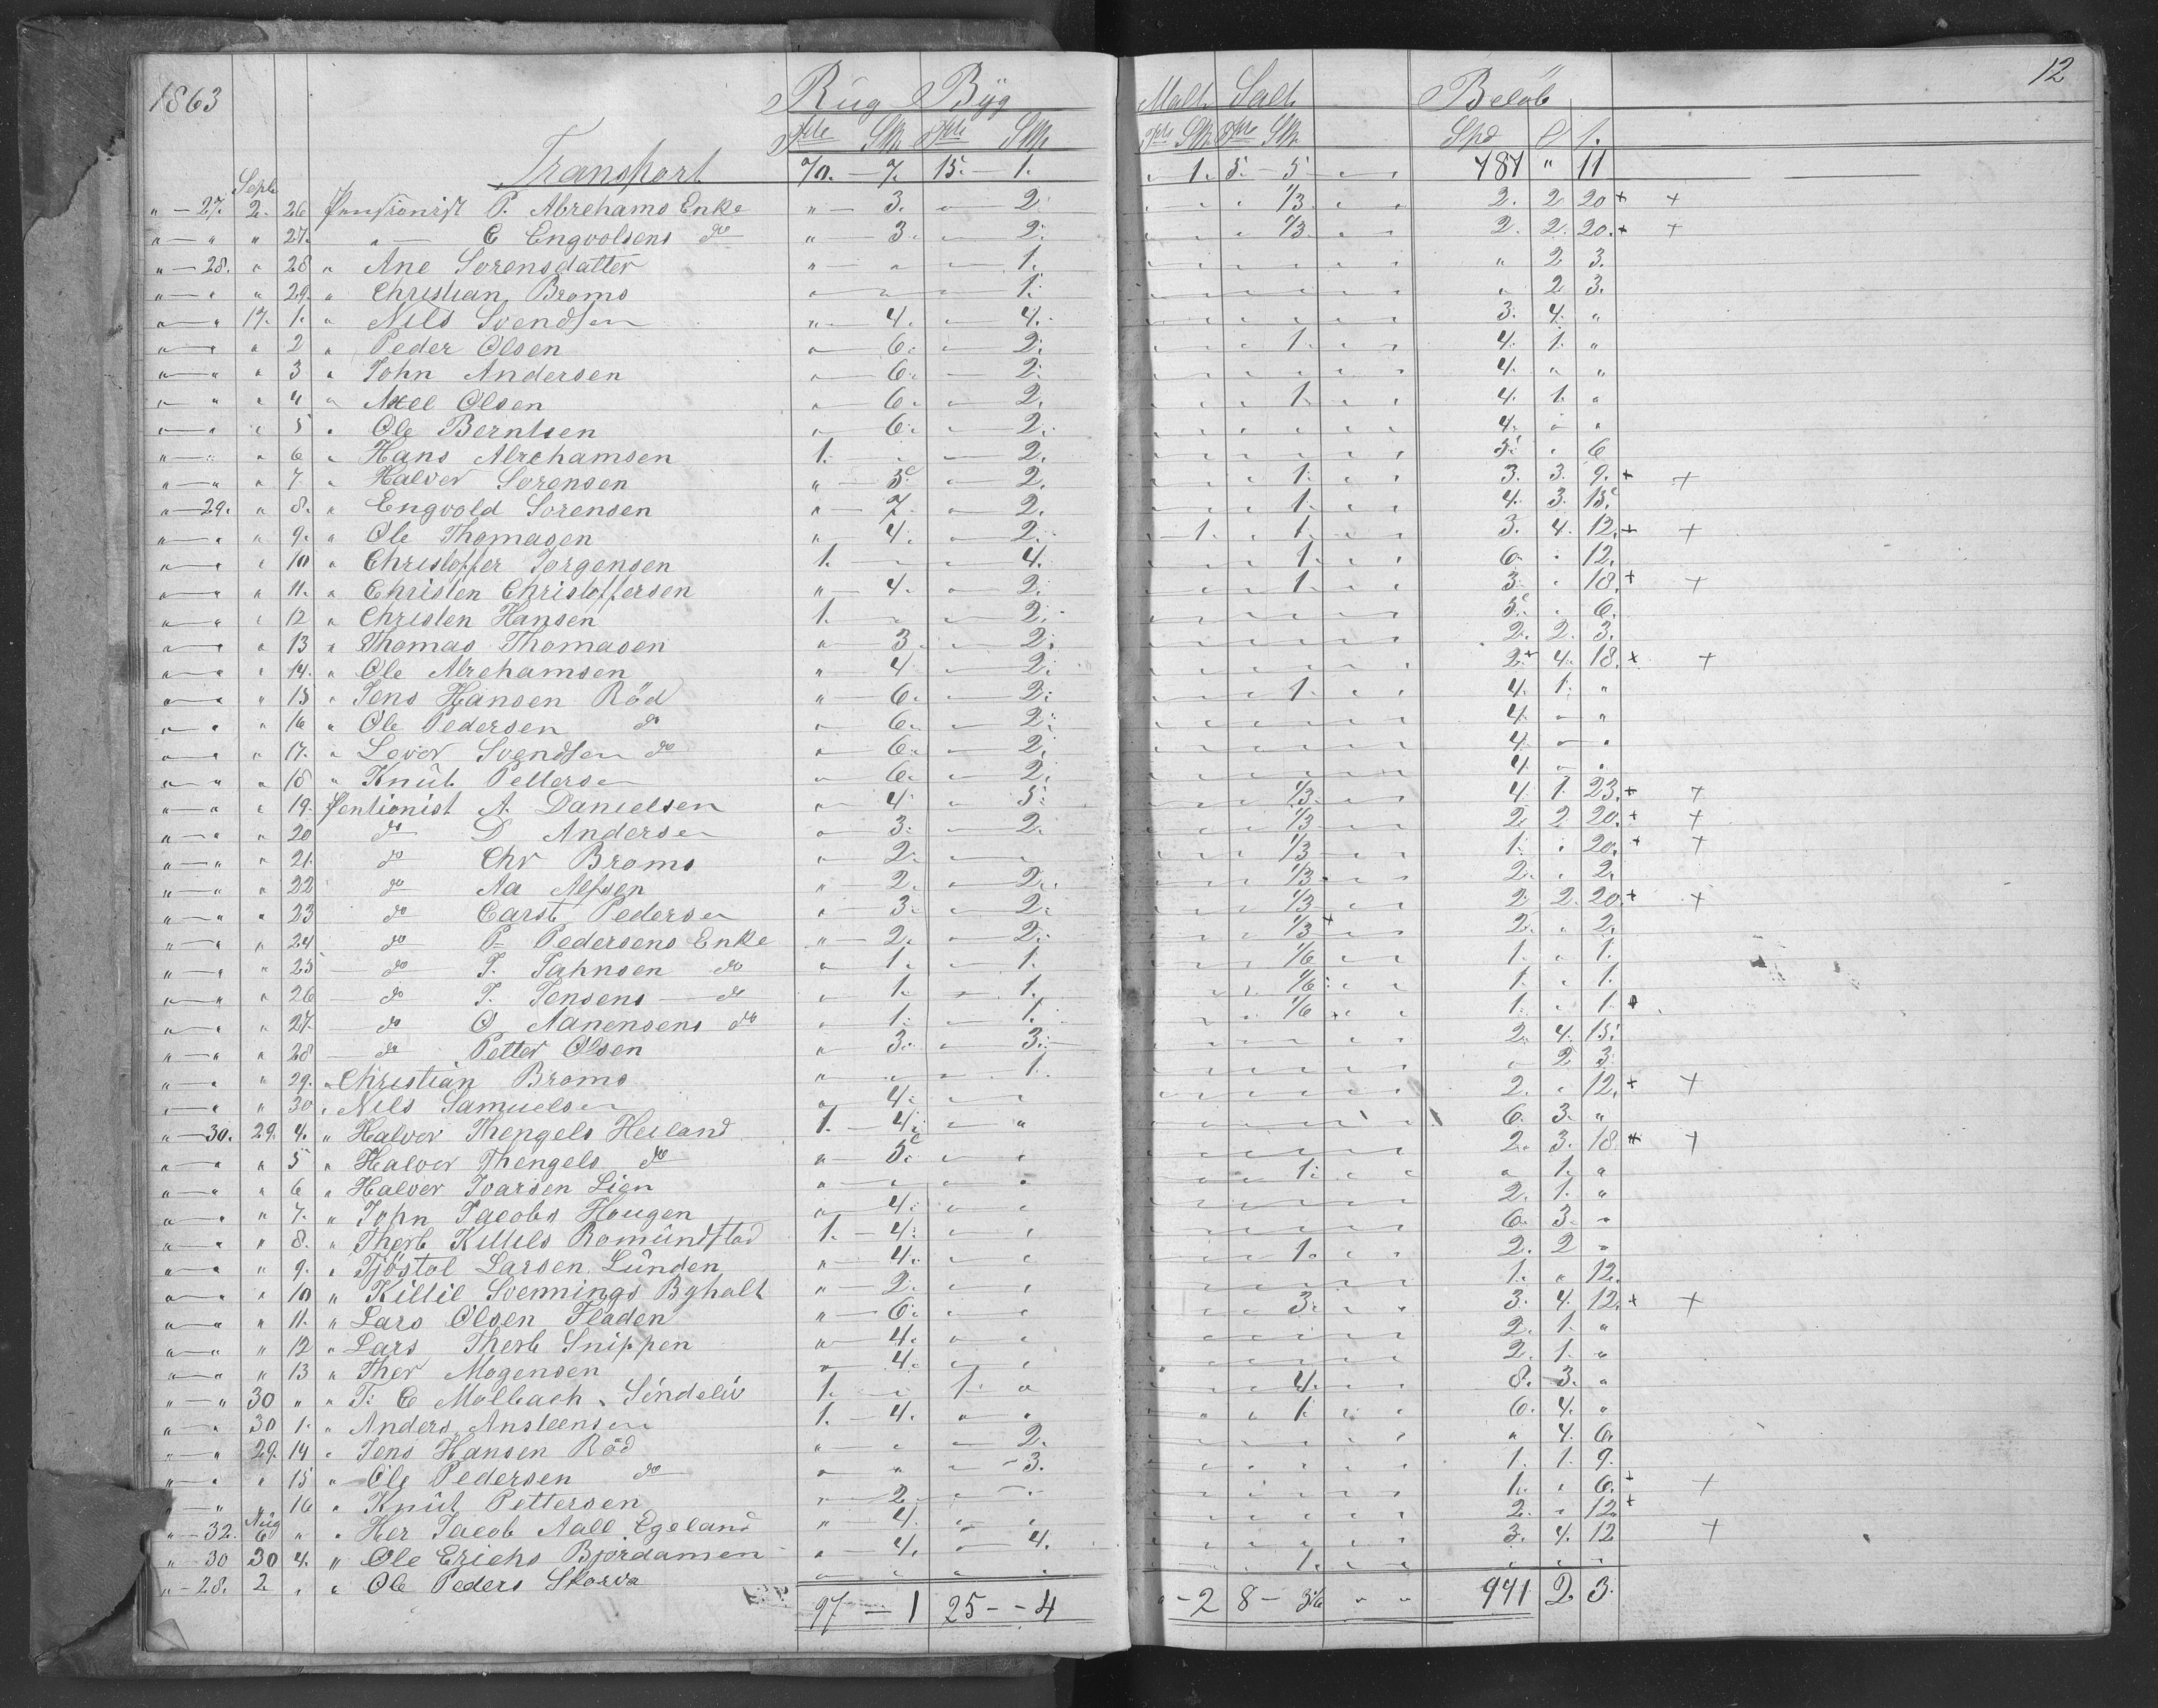 1863 Rug Byg Malt Salt Beløb 12
Tdr Skp Tdr Skp Tdr Skp Tdr Skp Spd
Transport 70. 7. 15. 1. " 1. 5. 5 " " 781 " 11
Sept
" 27. 2. 26 Pensionist P. Abrehams Enke " 3. " 2 " " " 1/3 " " 2. 2 20 + +
" " " 27. " E Engvolsens do " 3. " 2. " " " 1/3 " " 2. 2. 20. + +
" 28. " 28 " Ane Sorensdatter " " " 1. " " " " " " " 2 3.
" " " 29. " Christian Broms " " " 1. " " " " " " " 2 3.
" " 17. 1. " Nils Svendsen " 4. " 4. " " " " " " 3. 4. "
" " " 2 " Peder Olsen " 6. " 2. " " " 1. " " 4. 1. "
" " " 3 " John Andersen " 6. " 2. " " " " " " 4. " "
" " " 4 " Axel Olsen " 6. " 2. " " " 1. " " 4. 1. "
" " " 5 " Ole Berntsen " 6. " 2. " " " " " " 4. " "
" " " 6 " Hans Abrehamsen 1. " " 2. " " " " " " 5. " 6
" " " 7 " Halver Sorensen " 5 " 2. " " " 1. " " 3. 3. 9. + +
" 29. " 8. " Engvold Sorensen " 7. " 2. " " " 1. " " 4. 3. 15
" " " 9. " Ole Thomasen " 4. " 2. " 1. " 1. " " 3. 4. 12. + +
" " " 10 " Christoffer Jorgensen 1. " " 4. " " " 1. " " 6. " 12.
" " " 11. " Christen Christoffersen " 4. " 2. " " " 1. " " 3. " 18. + +
" " " 12 " Christen Hansen 1. " " 2. " " " " " " 5. " 6.
" " " 13 " Thomas Thomasen " 3 " 2. " " " " " " 2. 2. 3.
" " " 14. " Ole Abrehamsen " 4. " 2. " " " " " " 2. 4. 18. + +
" " " 15 " Jens Hansen Röd " 6. " 2. " " " 1. " " 4. 1. "
" " " 16 " Ole Pedersen do " 6. " 2. " " " " " " 4. " "
" " " 17. " Lover Svendsen do " 6. " 2. " " " " " " 4. " "
" " " 18 " Knut Pettersen " 6. " 2. " " " " " " 4. " "
" " " 19. Pentionist A. Danielsen " 4. " 5. " " " 1/3 " " 4. 1. 23. + +
" " " 20 do D Andersen " 3. " 2. " " " 1/3 " " 2 2 20. + +
" " " 21. do Chr Broms " 2. " " " " " 1/3 " " 1. " 20. + +
" " " 22 do Aa Alfsen " 2. " 2. " " " 1/3 " " 2. " 2.
" " " 23 do Carst Pedersen " 3. " 2. " " " 1/3 " " 2 2. 20. + +
" " " 24 do P Pedersens Enke " 2. " 2. " " " 1/3 + " " 2. " 2.
" " " 25 do J. Jahnsen do " 1. " 1. " " " 1/6 " " 1. " 1.
" " " 26 do J. Jensens do " 1. " 1. " " " 1/6 " " 1. " 1.
" " " 27. do O Aanensens do " 1. " 1. " " " 1/6 " " 1. " 1.
" " " 28 do Petter Olsen " 3. " 3. " " " " " " 2. 4. 15.
" " " 29. " Christian Broms " " " 1. " " " " " " " 2 3
" " " 30. " Nils Samuelsen " 4. " " " " " " " " 2. " 12. + +
" 30. 29. 4. " Halver Thengels Heiland 1. 4. " " " " " " " " 6. 3. "
" " " 5 " Halver Thengels do " 5 " " " " " " " " 2. 3. 18. + +
" " " 6 " Halver Ivarsen Lien " " " " " " " 1. " " " 1. "
" " " 7. " John Jacobs Hougen " 4. " " " " " " " " 2. 1. "
" " " 8. " Therb Killils Romundstad 1. 4. " " " " " " " " 6. 3. "
" " " 9. " Tjöstol Larsen Lunden " 4. " " " " " 1. " " 2. 2 "
" " " 10 " Killil Svennings Byholt " 2. " " " " " " " " 1. " 12.
" " " 11. " Lars Olsen Fladen " 6. " " " " " 3. " " 3. 4. 12. + +
" " " 12 " Lars Therb Snippen " 4. " " " " " " " " 2. 1. "
" " " 13 " Ther Mogensen " 4. " " " " " " " " 2. 1. "
" " 30 " " T. C Molbach Sindeliv 1. " 1. " " " " 4. " " 8. 3. "
" " 30 1. " Anders Ansteensen 1. 4. " " " " " 1. " " 6. 4. "
" " 29. 14 " Jens Hansen Röd " " " 2. " " " " " " " 4. 6.
" " " 15 " Ole Pedersen do " " " 3. " " " " " " 1. 1. 9.
" " " 16 " Knut Pettersen " 2 " " " " " " " " 1. " 6. + +
Aug
" 32. 6 " " Her Jacob Aall Egeland " 4. " " " " " " " " 2. " 12 +
" 30 30 4. " Ole Erichs Bjordammen " 4. " 4. " " " " " " 3. 4. 12 +
" 28. 2 " " Ole Peders Skorva " " " " " " " 1. " " " " "
97 1 25 4 " 2 8 3 1/6 " " 941 2 3.